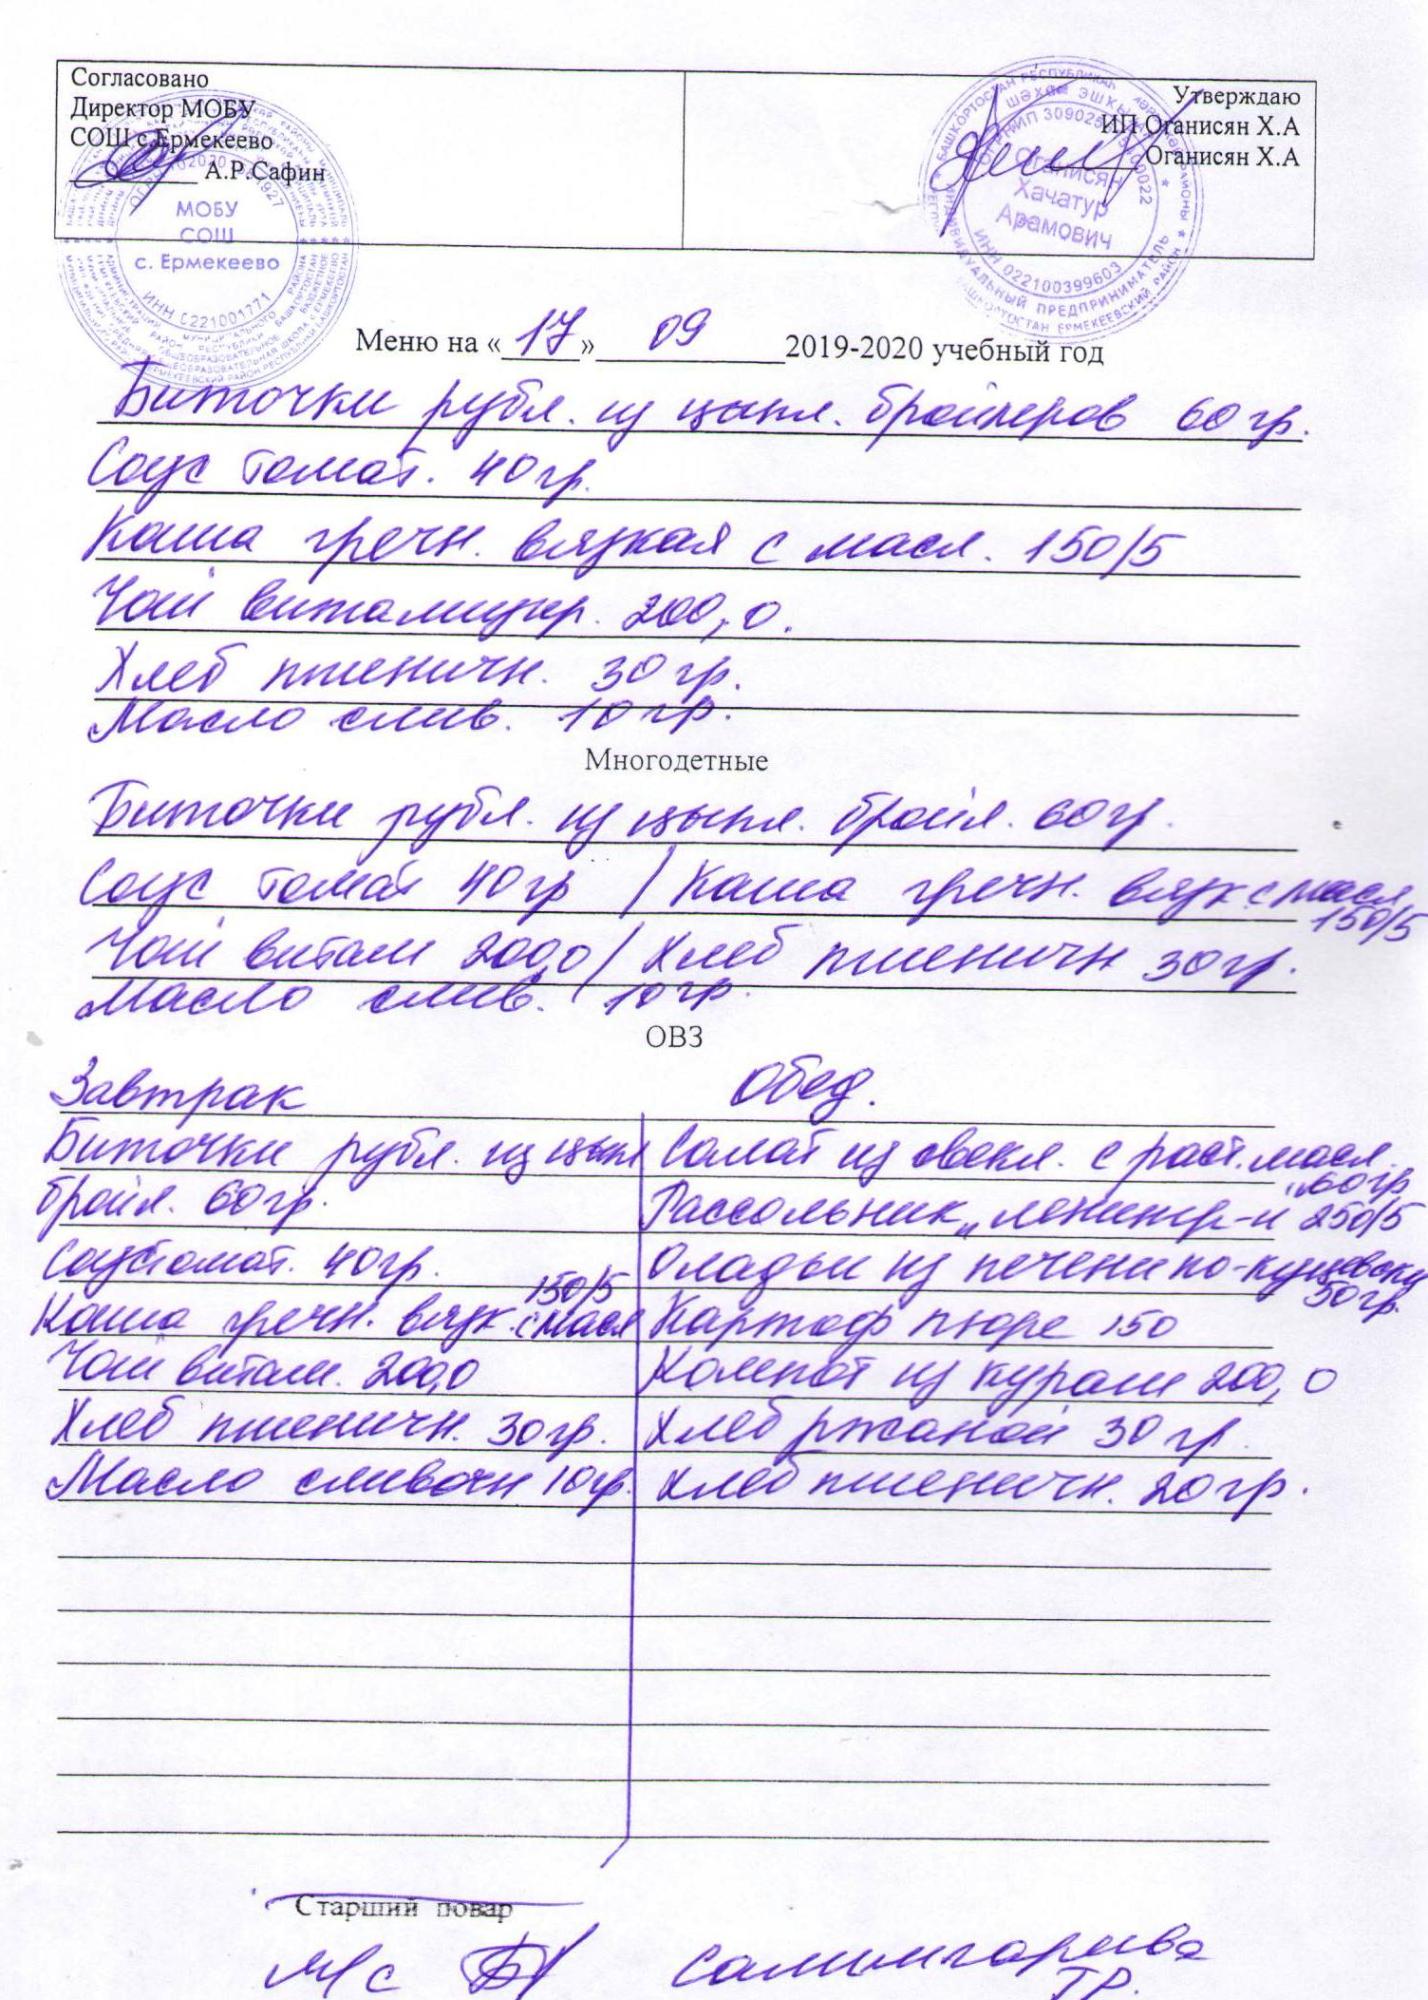 Согласовано
Директор МОБУ
СОШ с.Ермекеево
А.Р.Сафин
МОБУ
СОШ
с. Ермекеево
ИНН 0221001771
Утверждаю
ИП Оганисян Х.А
Оганисян Х.А
Оганисян
Хачатур
Арамович
ИНН 022100399603
ИНДИВИДУАЛЬНЫЙ ПРЕДПРИНИМАТЕЛЬ
Меню на « 17 » 09 2019-2020 учебный год
Биточки рубл. из цыпл. бройлеров 60 гр.
Соус томат. 40 гр.
Каша гречн. вязкая с масл. 150/5
Чай витаминизир. 200,0.
Хлеб пшеничн. 30 гр.
Масло слив. 10 гр.
Многодетные
Биточки рубл. из цыпл. бройл. 60 гр.
Соус томат 40 гр / Каша гречн. вязк с масл 150/5
Чай витам 200,0 / Хлеб пшеничн 30 гр.
Масло слив. 10 гр.
ОВЗ
Завтрак
Биточки рубл. из цыпл
бройл. 60 гр.
Соус томат. 40 гр.
Каша гречн. вязк. с масл 150/5
Чай витам. 200,0
Хлеб пшеничн. 30 гр.
Масло сливочн 10 гр.
Обед.
Салат из свекл. с раст. масл. 60 гр
Рассольник „ленингр-й 250/5
Оладьи из печени по-кунцевски 50 гр.
Картоф пюре 150
Компот из кураги 200,0
Хлеб ржаной 30 гр.
Хлеб пшеничн. 20 гр.
Старший повар
м/с Салимгареева